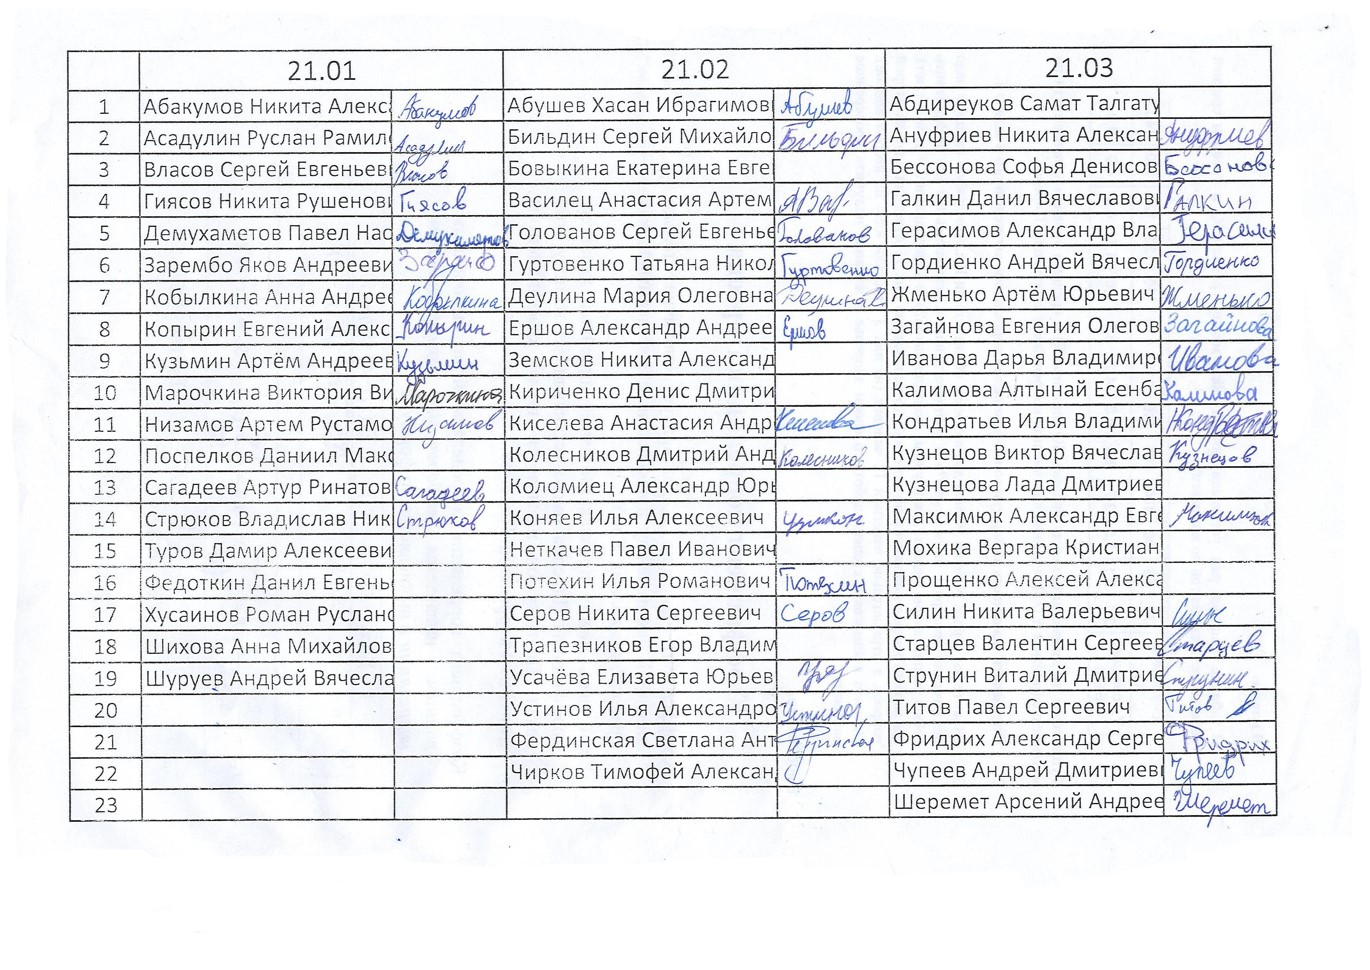 21.01 21.02 21.03
1 Абакумов Никита Алекс Абакумов Абушев Хасан Ибрагимов Абушев Абдиреуков Самат Талгату
2 Асадулин Руслан Рамил Асадулин Бильдин Сергей Михайло Бильдин Ануфриев Никита Алексан Ануфриев
3 Власов Сергей Евгеньев Власов Бовыкина Екатерина Евге Бессонова Софья Денисов Бессонов
4 Гиясов Никита Рушенов Гиясов Василец Анастасия Артем Галкин Данил Вячеславов Галкин
5 Демухаметов Павел Нас Демухаметов Голованов Сергей Евгенье Голованов Герасимов Александр Вла Герасим
6 Зарембо Яков Андрееви Гуртовенко Татьяна Никол Гуртовенко Гордиенко Андрей Вячесл Гордиенко
7 Кобылкина Анна Андрее Кобылкина Деулина Мария Олеговна Жменько Артём Юрьевич Жменько
8 Копырин Евгений Алекс Копырин Ершов Александр Андрее Ершов Загайнова Евгения Олегов Загайнова
9 Кузьмин Артём Андреев Кузьмин Земсков Никита Александ Иванова Дарья Владимир Иванова
10 Марочкина Виктория Ви Марочкина Кириченко Денис Дмитри Калимова Алтынай Есенба Калимова
11 Низамов Артем Рустамо Низамов Киселева Анастасия Андр Кондратьев Илья Владими
12 Поспелков Даниил Макс Колесников Дмитрий Анд Колесников Кузнецов Виктор Вячеслав Кузнецов
13 Сагадеев Артур Ринатов Сагадеев Коломиец Александр Юрь Кузнецова Лада Дмитриев
14 Стрюков Владислав Ник Стрюков Коняев Илья Алексеевич Максимюк Александр Евге Максимюк
15 Туров Дамир Алексееви Неткачев Павел Иванович Мохика Вергара Кристиан
16 Федоткин Данил Евгень Потехин Илья Романович Потехин Прощенко Алексей Алекса
17 Хусаинов Роман Руслано Серов Никита Сергеевич Серов Силин Никита Валерьевич
18 Шихова Анна Михайлов Трапезников Егор Владим Старцев Валентин Сергеев Старцев
19 Шуруев Андрей Вячесла Усачёва Елизавета Юрьев Струнин Виталий Дмитрие Струнин
20 Устинов Илья Александро Устинов Титов Павел Сергеевич Титов
21 Фердинская Светлана Ант Фердинская Фридрих Александр Серге Фридрих
22 Чирков Тимофей Алексан Чупеев Андрей Дмитриев Чупеев
23 Шеремет Арсений Андрее Шеремет